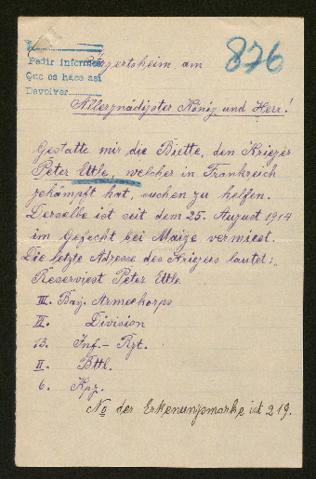 Pedir informes
Que es haes asi
Devolver
876
Eggertsheim am
Allergnädigster König und Herr!
Gestatte mir die Biette, den Krieger
Peter Ettle, welcher in Frankreich
gekämpft hat, suchen zu helfen.
Derselbe ist seit dem 25. August 1914
im Gefecht bei Maize vermiest.
Die letzte Adresse des Kriegers lautet:
Reserviest Peter Ettle
III. Bay. Armeekorps
VI. Division
13. Inf.-Rgt.
II. Bttl.
6. Kpg.
No der Erkenungsmarke ist 219.